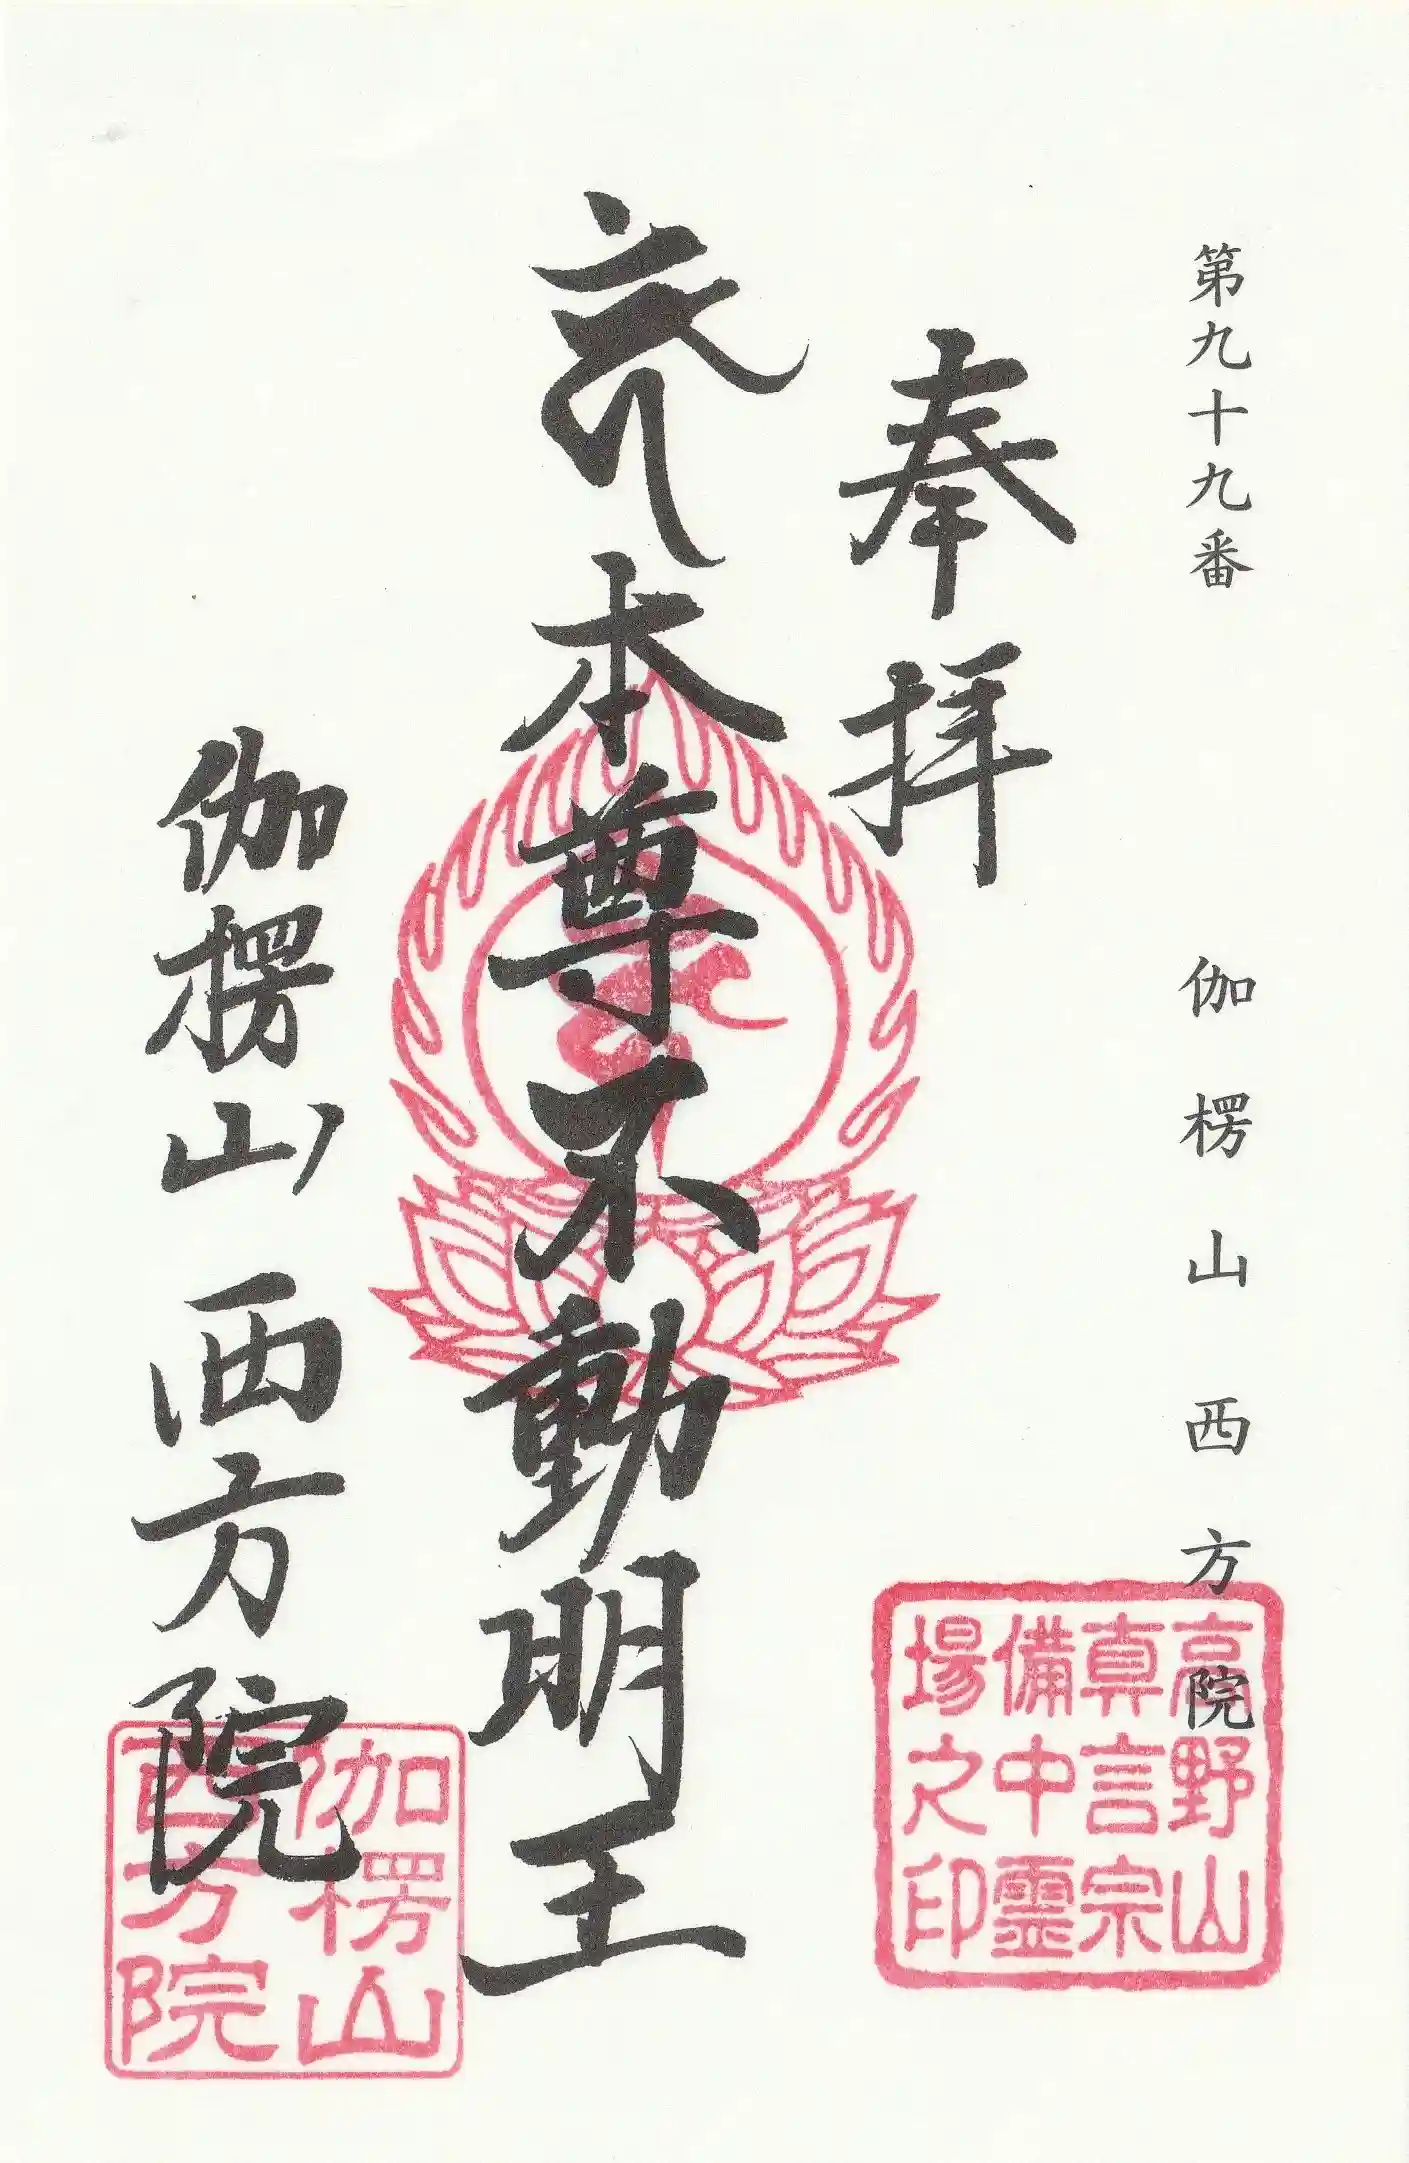 第九十九番 伽楞山西方院
奉拝
本尊不動明王
伽楞山 西方院
高野山
真言宗
備中霊
場之印
伽楞山
西方院